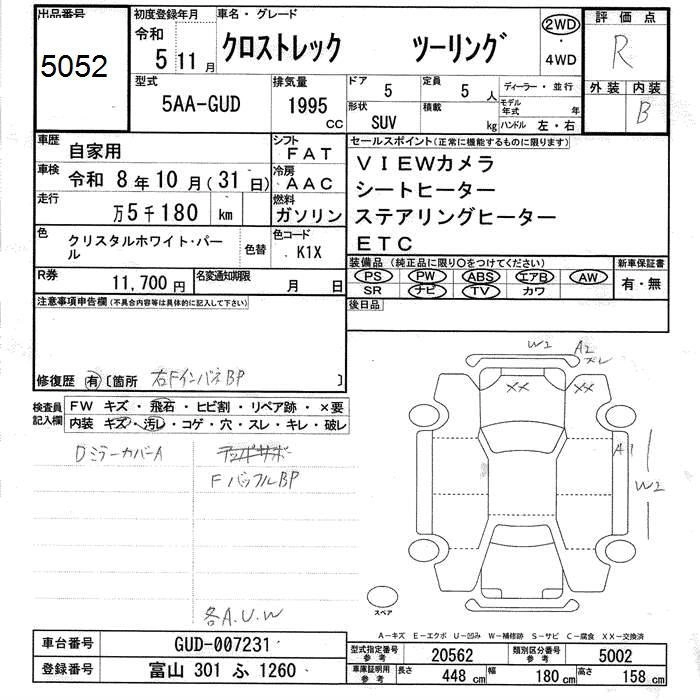 出品番号 5052
初度登録年月 令和 5年 11月
車名・グレード クロストレック ツーリング
2WD・4WD
評価点 R
外装 内装 B
型式 5AA-GUD
排気量 1995 CC
ドア 5
定員 5 人
形状 SUV
積載 kg
ディーラー・並行
モデル年式 年
ハンドル 左・右
車歴 自家用
シフト FAT
車検 令和 8年 10月 (31日)
冷房 AAC
走行 万5千180 km
燃料 ガソリン
色 クリスタルホワイト・パール
色替
色コード K1X
R券 11,700円
名変通知期限 月 日
セールスポイント(正常に機能するものに限ります)
VIEWカメラ
シートヒーター
ステアリングヒーター
ETC
装備品 (純正品に限り○をつけてください)
PS PW ABS エアB AW
SR ナビ TV カワ
新車保証書 有・無
後日品
注意事項申告欄(不具合内容等は具体的に記入して下さい)
修復歴 有 [箇所 右FインパネBP ]
検査員記入欄
FW キズ・飛石・ヒビ割・リペア跡・×要
内装 キズ・汚レ・コゲ・穴・スレ・キレ・破レ
DミラーカバーA
FバッフルBP
各A.U.W
W2 A2 スレ
XX XX
A1
W2
スペア
A-キズ E-エクボ U-凹み W-補修跡 S-サビ C-腐食 XX-交換済
車台番号 GUD-007231
登録番号 富山 301 ふ 1260
型式指定番号 参考 20562
類別区分番号 参考 5002
車庫証明用 参考 長さ 448 cm 幅 180 cm 高さ 158 cm